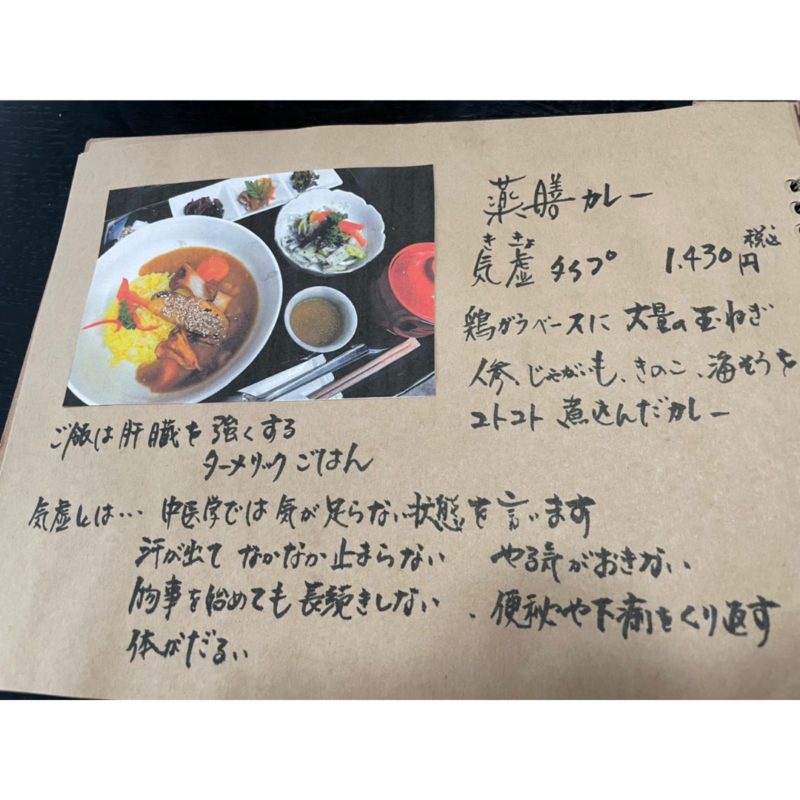 薬膳カレー
きききょ
気虚タイプ 1,430円 税込
鶏がらベースに 大量の玉ねぎ
人参 じゃがいも、きのこ、海そうを
コトコト 煮込んだカレー
ご飯は肝臓を強くする
ターメリックごはん
気虚とは… 中医学では気が足らない状態を言います
汗が出て なかなか止まらない やる気がおきない
物事を始めても長続きしない 、便秘や下痢をくり返す
体がだるい